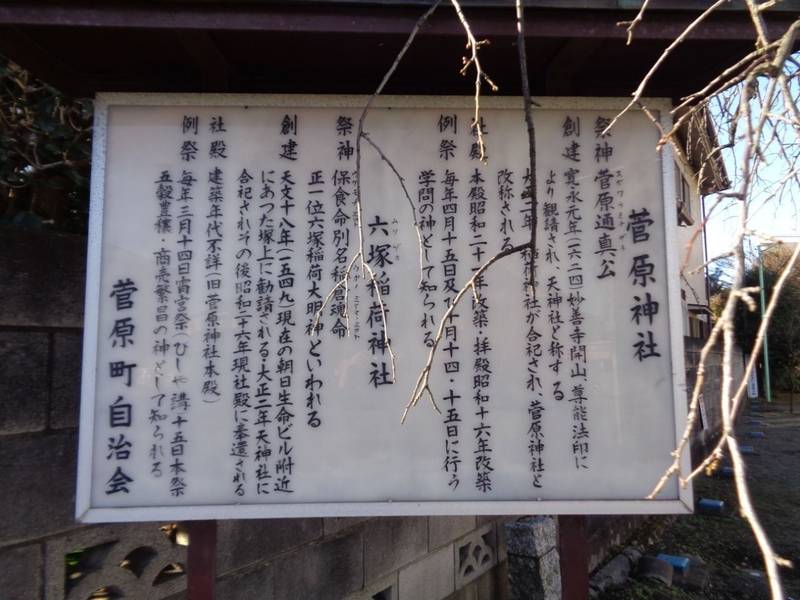 菅原神社
祭神 菅原道真公
スガワラミチザネ
創建 寛永元年(一六二四)妙善寺開山 尊能法印に
より観請され、天神社と称する
大正二年 稲荷神社が合祀され、菅原神社と
改称される
社殿 本殿昭和二十一年改築・拝殿昭和十六年改築
例祭 毎年四月十五日及び十月十四・十五日に行う
学問の神として知られる
六塚稲荷神社
ムツヅカ
祭神 保食命別名稲倉魂命
正一位六塚稲荷大明神といわれる
創建 天文十八年(一五四九)現在の朝日生命ビル附近
にあつた塚上に勧請される・大正二年天神社に
合祀されその後昭和二十六年現社殿に奉遷される
社殿 建築年代不詳(旧菅原神社本殿)
例祭 毎年三月十四日宵宮祭(ひしゃ講)十五日本祭
五穀豊穣・商売繁昌の神として知られる
菅原町自治会